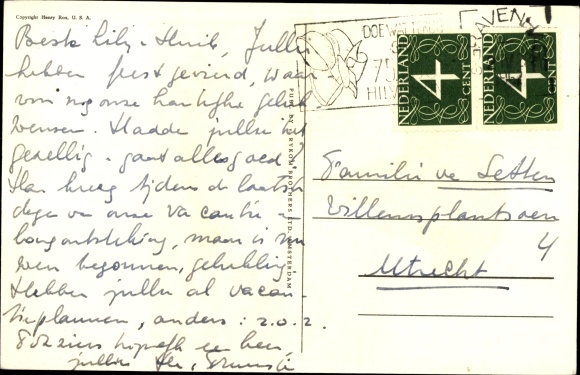 Copyright Henry Ries, U. S. A.
Beste Lily & Huib, Jullie
hebben feest gevierd, waar-
voor nog onze hartelijke geluk
wensen. Hadde jullie het
gezellig & gaat alles goed?
Han kreeg tijdens de laatste
dagen van onze vacantie
longontsteking, maar is nu
weer begonnen, gelukkig.
Hebben jullie al vacan-
tieplannen, anders: z.o.z.
Tot ziens hopelijk
jullie
'S GRAVENH
75
HIL
NEDERLAND
4
CENT
NEDERLAND
4
CENT
BROTHERS LTD. AMSTERDAM
Familie
Willemsplantsoen
4
Utrecht